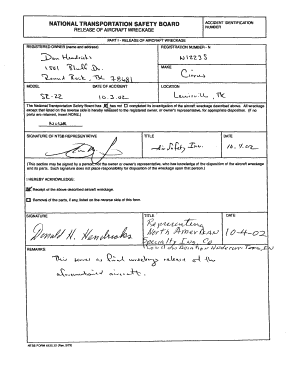 NATIONAL TRANSPORTATION SAFETY BOARD
RELEASE OF AIRCRAFT WRECKAGE
ACCIDENT IDENTIFICATION NUMBER
PART I - RELEASE OF AIRCRAFT WRECKAGE
REGISTERED OWNER (name and address)
REGISTRATION NUMBER - N
Don Hendricks
N1223S
1501 Bluff Dr.
MAKE
Round Rock, TX 78681
Cirrus
MODEL
DATE OF ACCIDENT
LOCATION
SR-22
10.3.02
Lewisville, TX
The National Transportation Safety Board has has not completed its investigation of the aircraft wreckage described above. All wreckage
except that listed on the reverse side is hereby released to the registered owner, or owner's representative, for appropriate disposition. (If no
parts are retained, insert NONE.)
NONE
SIGNATURE OF NTSB REPRESENTATIVE
TITLE
DATE
Air Safety Inv.
10.4.02
(This section may be signed by a person, the owner or owner's representative, who has knowledge of the disposition of the aircraft wreckage
and its parts. Such signature does not place responsibility for disposition upon this person.)
I HEREBY ACKNOWLEDGE:
Receipt of the above described aircraft wreckage.
Removal of the parts, if any, listed on the reverse side of this form.
SIGNATURE
TITLE
DATE
Donald H. Hendricks
Representing
North American
Specialty Ins. Co
10-4-02
REMARKS
This serves as final wreckage release of the
aforementioned aircraft.
NTSB FORM 6120.15